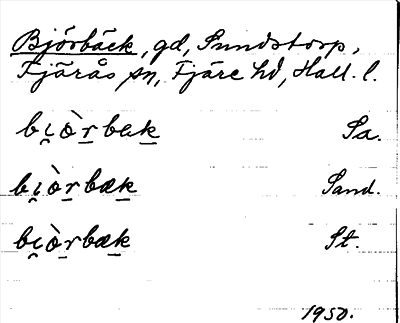 Björbäck, gd, Sundstorp,
Fjärås sn, Fjäre hd, Hall. l.
bi̯òrbak Sa.
bi̯òrbæk Sand.
bi̯òrbæk St.
1950.